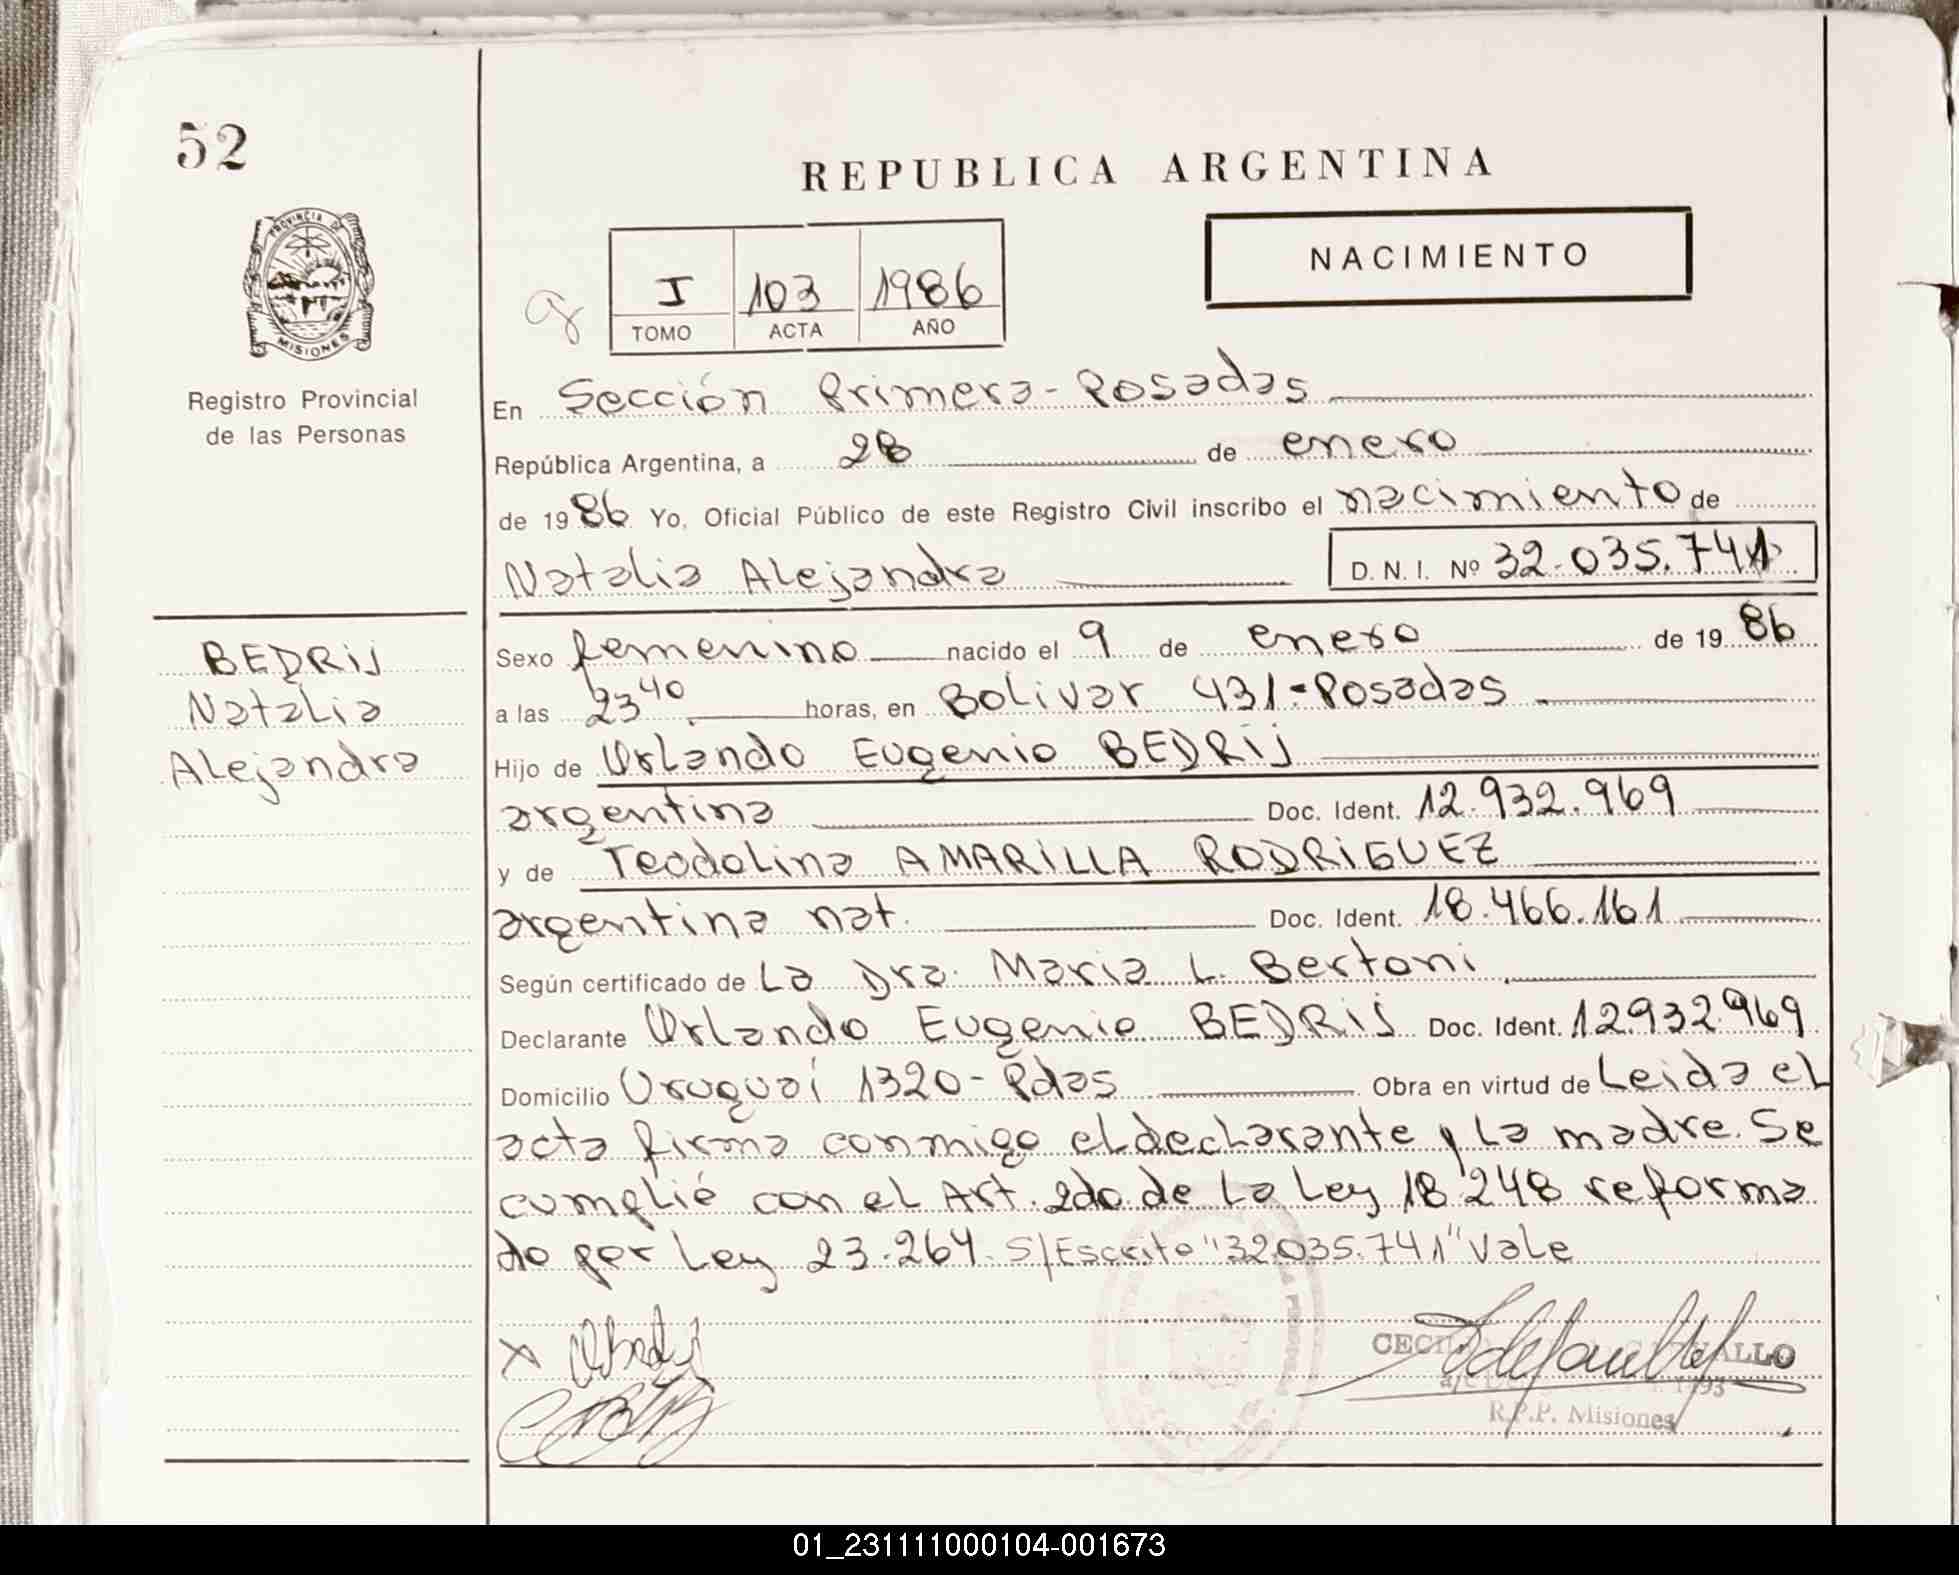 52
REPUBLICA ARGENTINA
PROVINCIA DE
MISIONES
Registro Provincial
de las Personas
I 103 1986
TOMO ACTA AÑO
NACIMIENTO
En Sección Primera - Posadas
República Argentina, a 28 de enero
de 1986 Yo, Oficial Público de este Registro Civil inscribo el nacimiento de
Natalia Alejandra D.N.I. Nº 32.035.741
BEDRIJ
Natalia
Alejandra
Sexo femenino nacido el 9 de enero de 1986
a las 23 40 horas, en Bolivar 431 - Posadas
Hijo de Orlando Eugenio BEDRIJ
argentina Doc. Ident. 12.932.969
y de Teodolina AMARILLA RODRIGUEZ
argentina nat. Doc. Ident. 18.466.161
Según certificado de La Dra. Maria L. Bertoni
Declarante Orlando Eugenio BEDRIJ Doc. Ident. 12.932.969
Domicilio Uruguaí 1320 - Pdas Obra en virtud de Leida el
acta firma conmigo el declarante y la madre. Se
cumplió con el Art. 2do. de la Ley 18.248 reforma
do por Ley 23.264. S/Escrito "32.035.741" Vale
R.P.P. Misiones
01_231111000104-001673